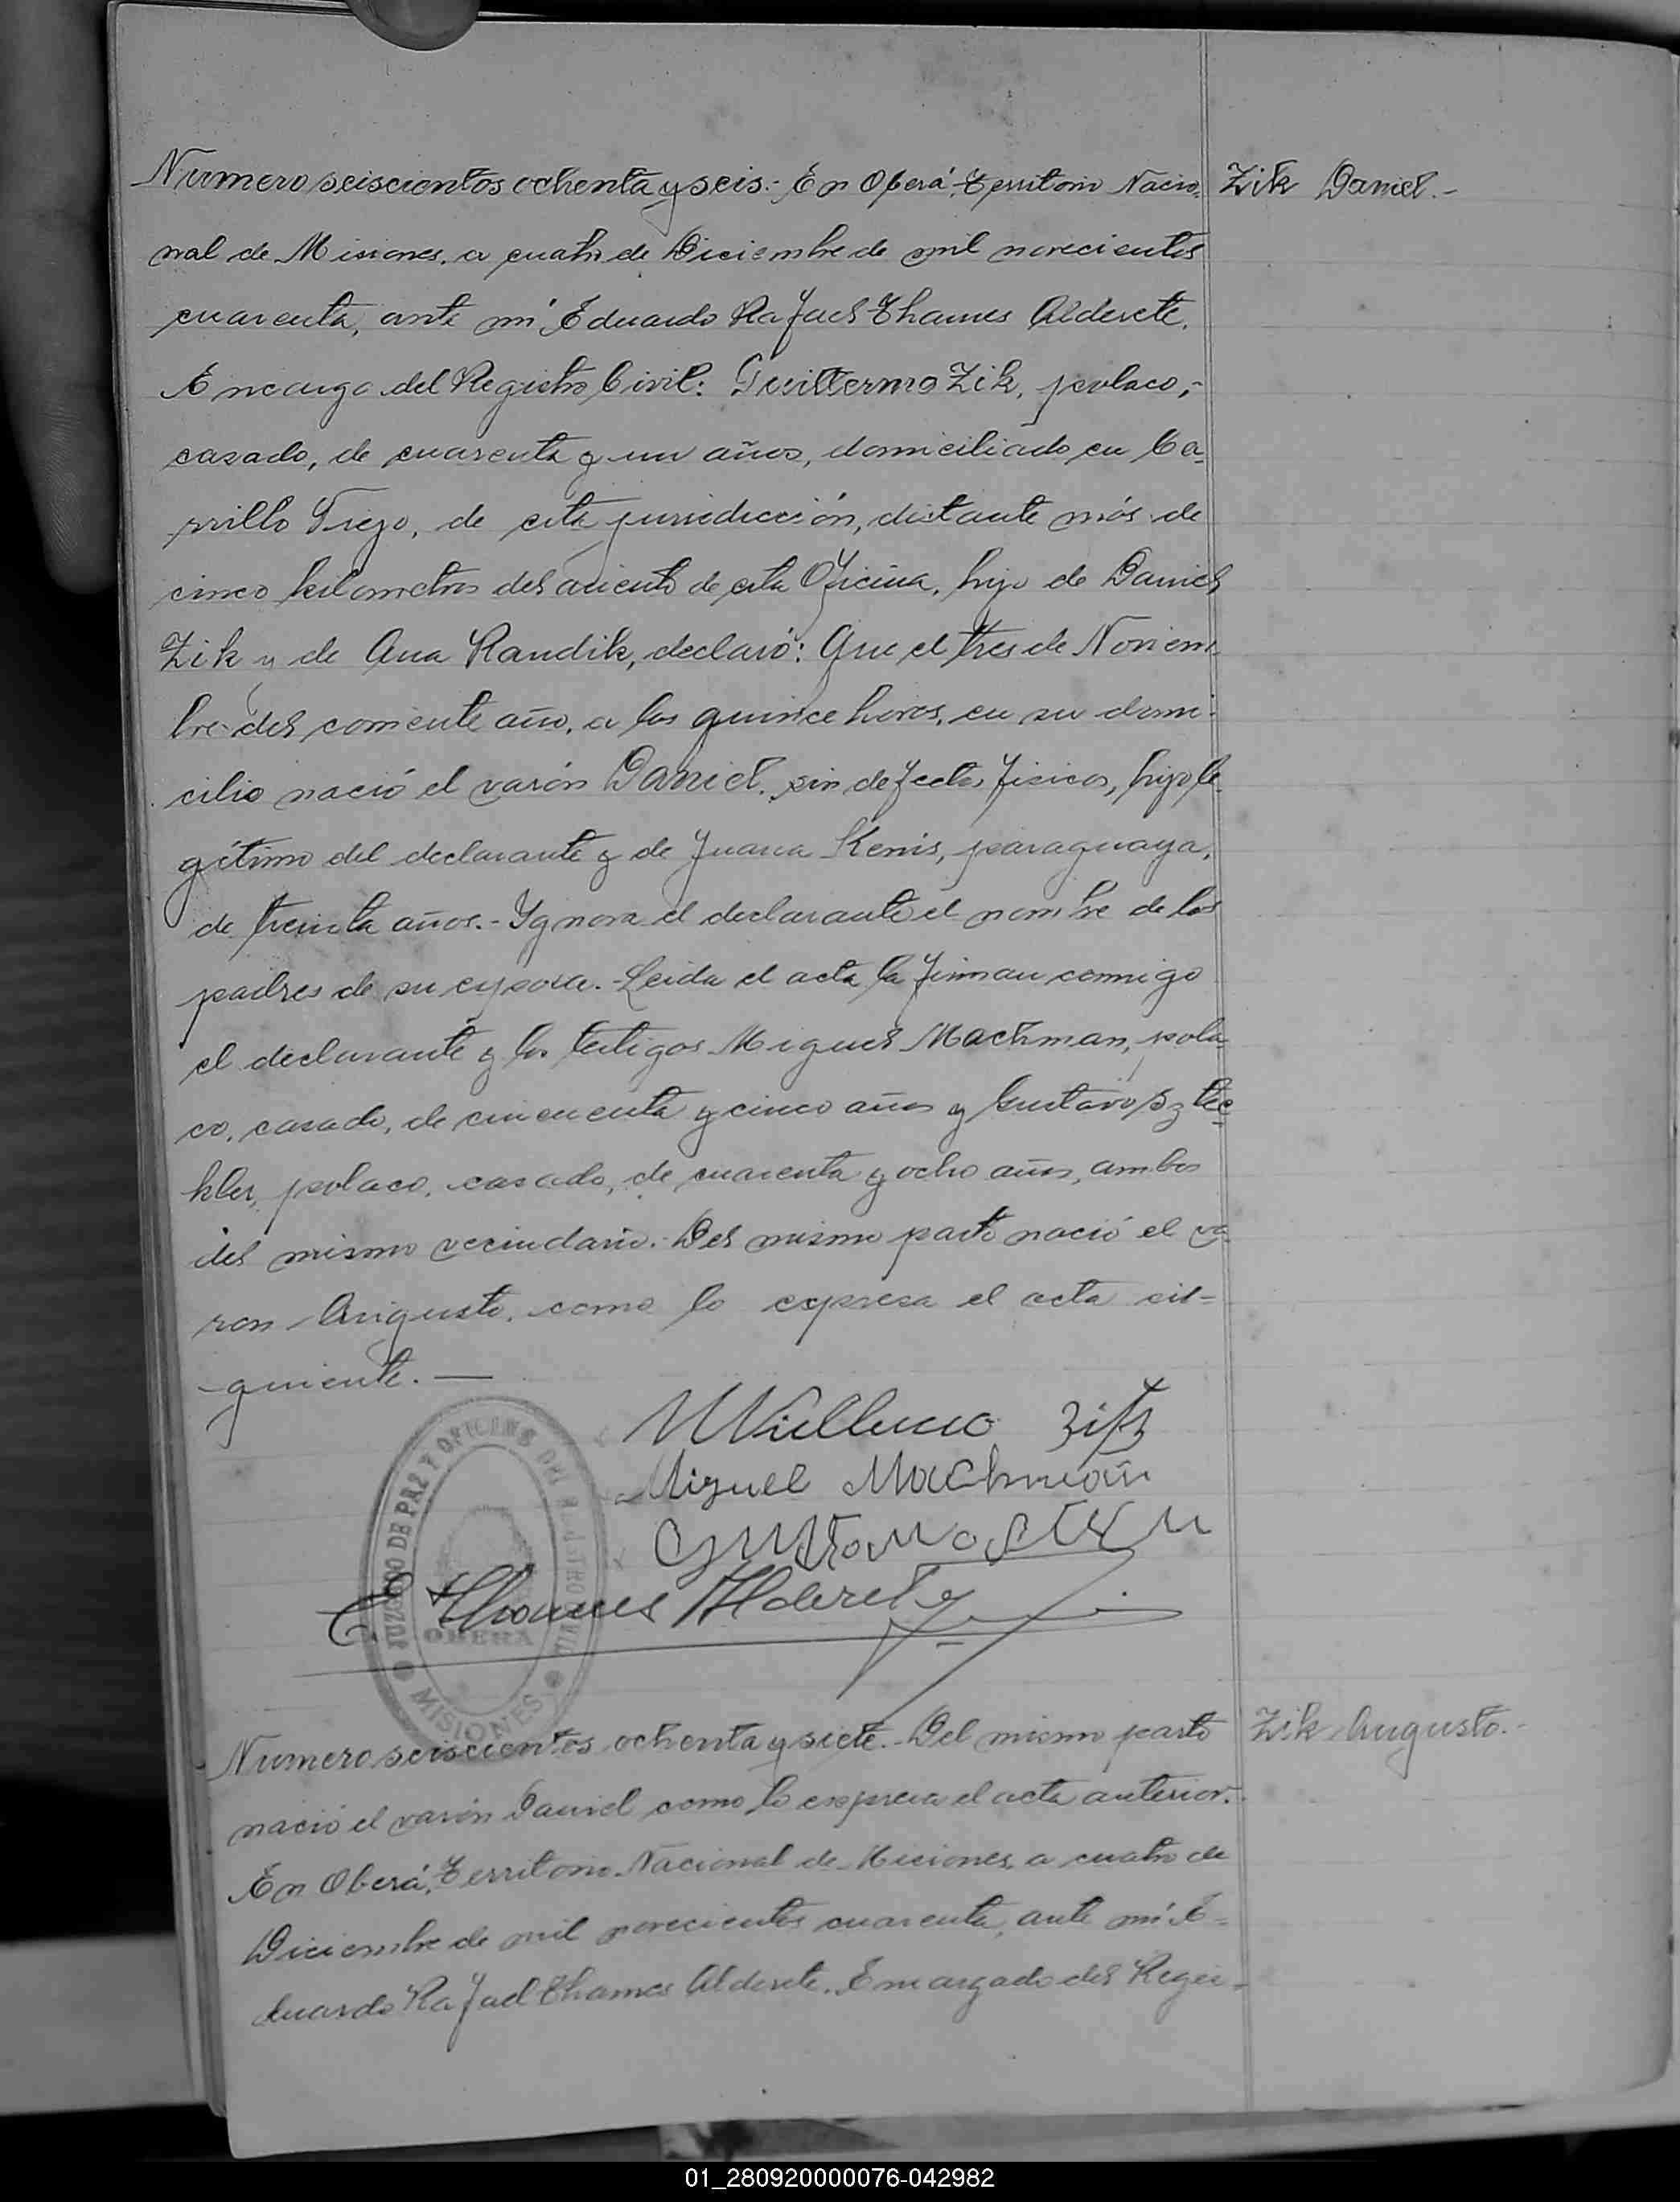 Numero seiscientos ochenta y seis.- En Oberá, Territorio Nacio-
Zik Daniel.-
nal de Misiones, a cuatro de Diciembre de mil novecientos
cuarenta, ante mí Eduardo Rafael Thames Alderete,
Encargo del Registro Civil: Guillermo Zik, polaco,-
casado, de cuarenta y un años, domiciliado en Ca-
rrillo Viejo, de esta jurisdicción, distante más de
cinco kilometros del asiento de esta Oficina, hijo de Daniel
Zik y de Ana Randik, declaró: Que el tres de Noviem-
bre del corriente año, a las quince horas, en su domi-
cilio nació el varón Daniel, sin defectos fisicos, hijo le-
gítimo del declarante y de Juana Kenis, paraguaya,
de treinta años.- Ygnora el declarante el nombre de los
padres de su esposa.- Leida el acta la firman conmigo
el declarante y los testigos Miguel Machman, pola-
co, casado, de cincuenta y cinco años y Gustavo Sztec-
kler, polaco, casado, de cuarenta y ocho años, ambos
del mismo vecindario.- Del mismo parto nació el va-
ron Augusto, como lo expresa el acta sil=
guiente.—
Miguel Machman
E Thames Alderete
JUZGADO DE PAZ Y OFICINA DEL REGISTRO CIVIL
OBERA
MISIONES
Numero seiscientos ochenta y siete.- Del mismo parto
Zik Augusto.-
nació el varón Daniel como lo expresa el acta anterior.
En Oberá, Territorio Nacional de Misiones, a cuatro de
Diciembre de mil novecientos cuarenta, ante mí E-
duardo Rafael Thames Alderete, Encargado del Regis-
01_280920000076-042982